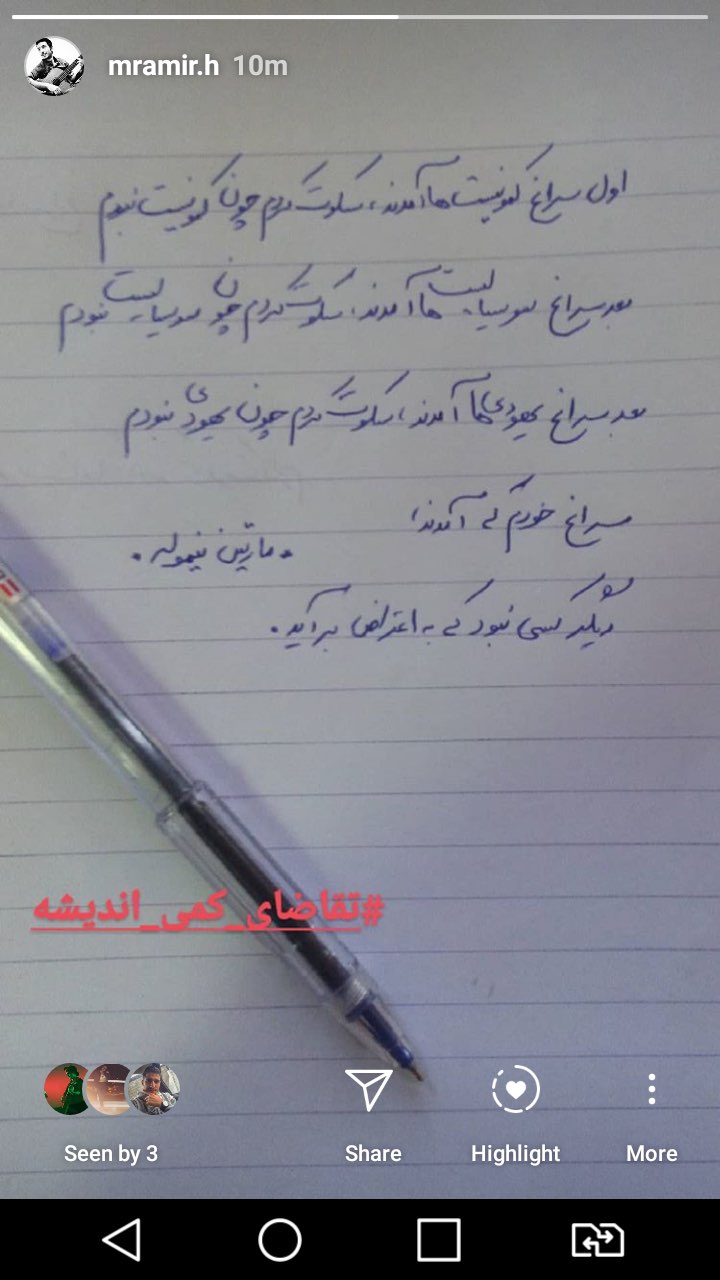 mramir.h 10m
اول سراغ کمونیست ها آمدند، سکوت کردم چون کمونیست نبودم
بعد سراغ سوسیالیست ها آمدند، سکوت کردم چون سوسیالیست نبودم
بعد سراغ یهودی ها آمدند، سکوت کردم چون یهودی نبودم
سراغ خودم که آمدند،
دیگر کسی نبود که به اعتراض برآید.
. مارتین نیمولر .
#تقاضای_کمی_اندیشه
Seen by 3
Share
Highlight
More